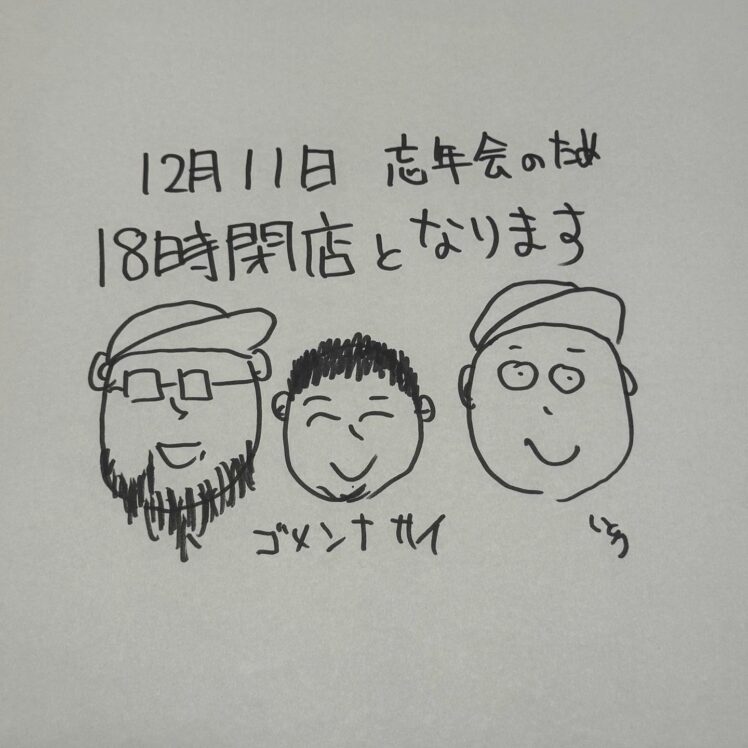 12月11日 忘年会のため
18時閉店となります
ゴメンナサイ
いとう